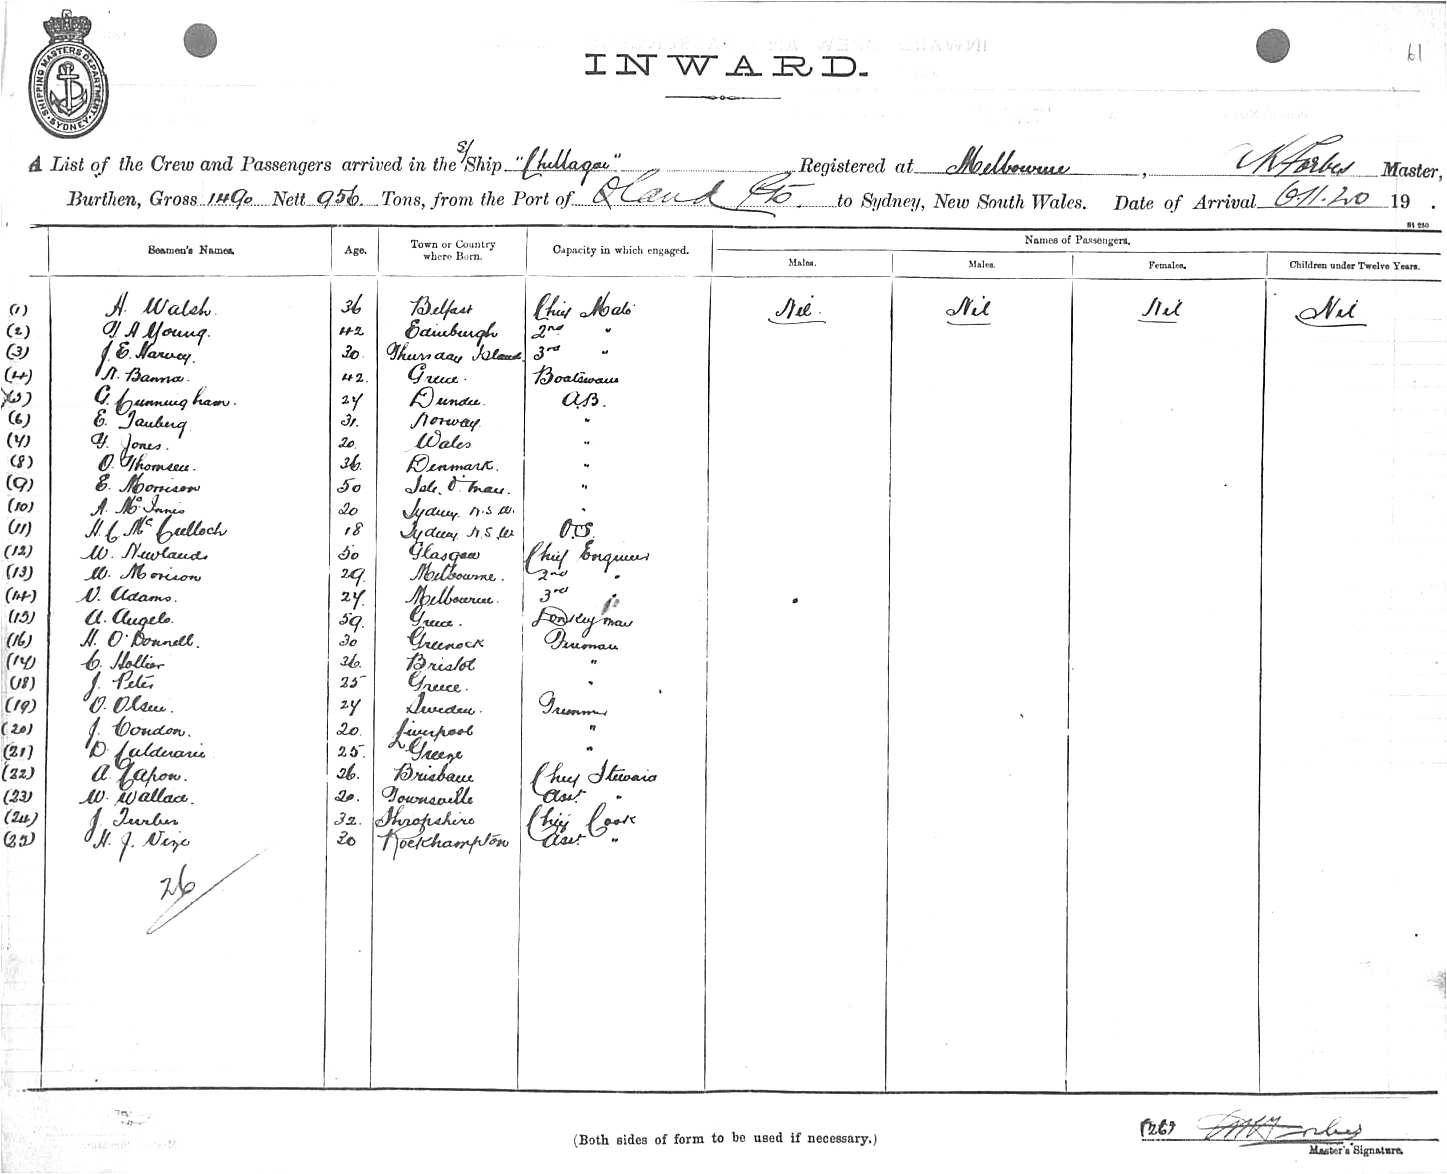 SHIPPING MASTERS DEPARTMENT · SYDNEY ·
INWARD.
61
A List of the Crew and Passengers arrived in the S/Ship "Chillagoe" Registered at Melbourne, Forbes Master,
Burthen, Gross 1490 Nett 956. Tons, from the Port of Qland Pts. to Sydney, New South Wales. Date of Arrival 6.11.20 19 .
Seamen's Names. Age. Town or Country where Born. Capacity in which engaged. Names of Passengers.
Males. Males. Females. Children under Twelve Years.
(1) H. Walsh. 36 Belfast Chief Mate Nil. Nil Nil Nil
(2) A Young. 42 Edinburgh 2nd "
(3) J. E. Harvey. 30 Thursday Island 3rd "
(4) N. Banna. 42. Greece. Boatswain
(5) G. Cunningham. 27 Dundee. A.B.
(6) E. Tauberg 31. Norway. "
(7) Y. Jones. 20. Wales "
(8) O. Thomsen. 36. Denmark. "
(9) E. Morrison 50 Isle. O' Man. "
(10) A. McInnis 20 Sydney N.S.W. "
(11) H. C. McCulloch 18 Sydney N.S.W O.S.
(12) W. Newlands 50 Glasgow Chief Engineer
(13) W. Morison 29. Melbourne. 2nd "
(14) V. Adams. 27. Melbourne. 3rd "
(15) A. Angelo. 59. Greece. Donkeyman
(16) H. O'Donnell. 30 Greenock Fireman
(17) C. Hollier 26. Bristol "
(18) J. Peter 25 Greece. "
(19) O. Olsen. 27 Sweden. Trimmer
(20) J. Condon. 20. Liverpool "
(21) D. Calderarie 25. Greece "
(22) A. Capon. 26. Brisbane Chief Steward
(23) W. Wallace. 20. Townsville Asst. "
(24) J. Turber 32. Shropshire Chief Cook
(25) H. J. Vize 20 Rockhampton Asst. "
26
(Both sides of form to be used if necessary.)
(26) Forbes
Master's Signature.